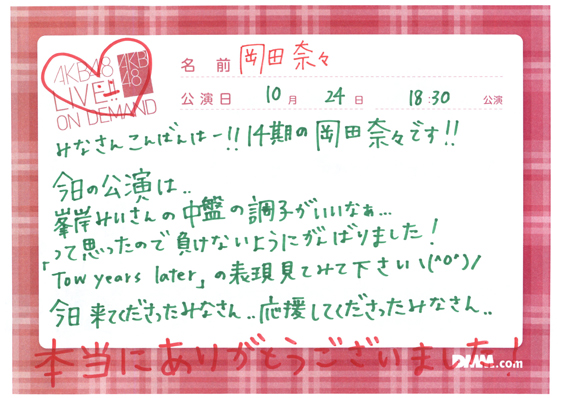 AKB48
AKB48
LIVE!!
ON DEMAND
名前 岡田奈々
公演日 10月 24日 18:30 公演
みなさんこんばんはー!!14期の岡田奈々です!!
今日の公演は..
峯岸みいさんの中盤の調子がいいなぁ...
って思ったので負けないようにがんばりました!
「Tow years later」の表現見てみて下さいヽ(^o^)/
今日来てくださったみなさん..応援してくださったみなさん..
本当にありがとうございました!
DMM.com